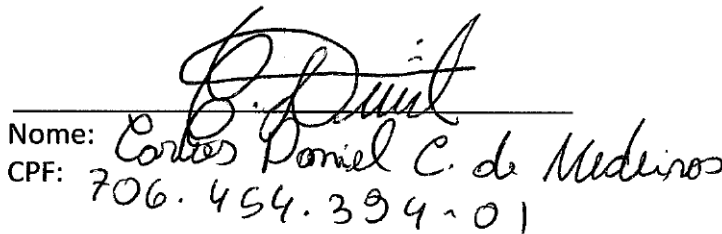 C. Daniel
Nome: Carlos Daniel C. de Medeiros
CPF: 706.454.394-01